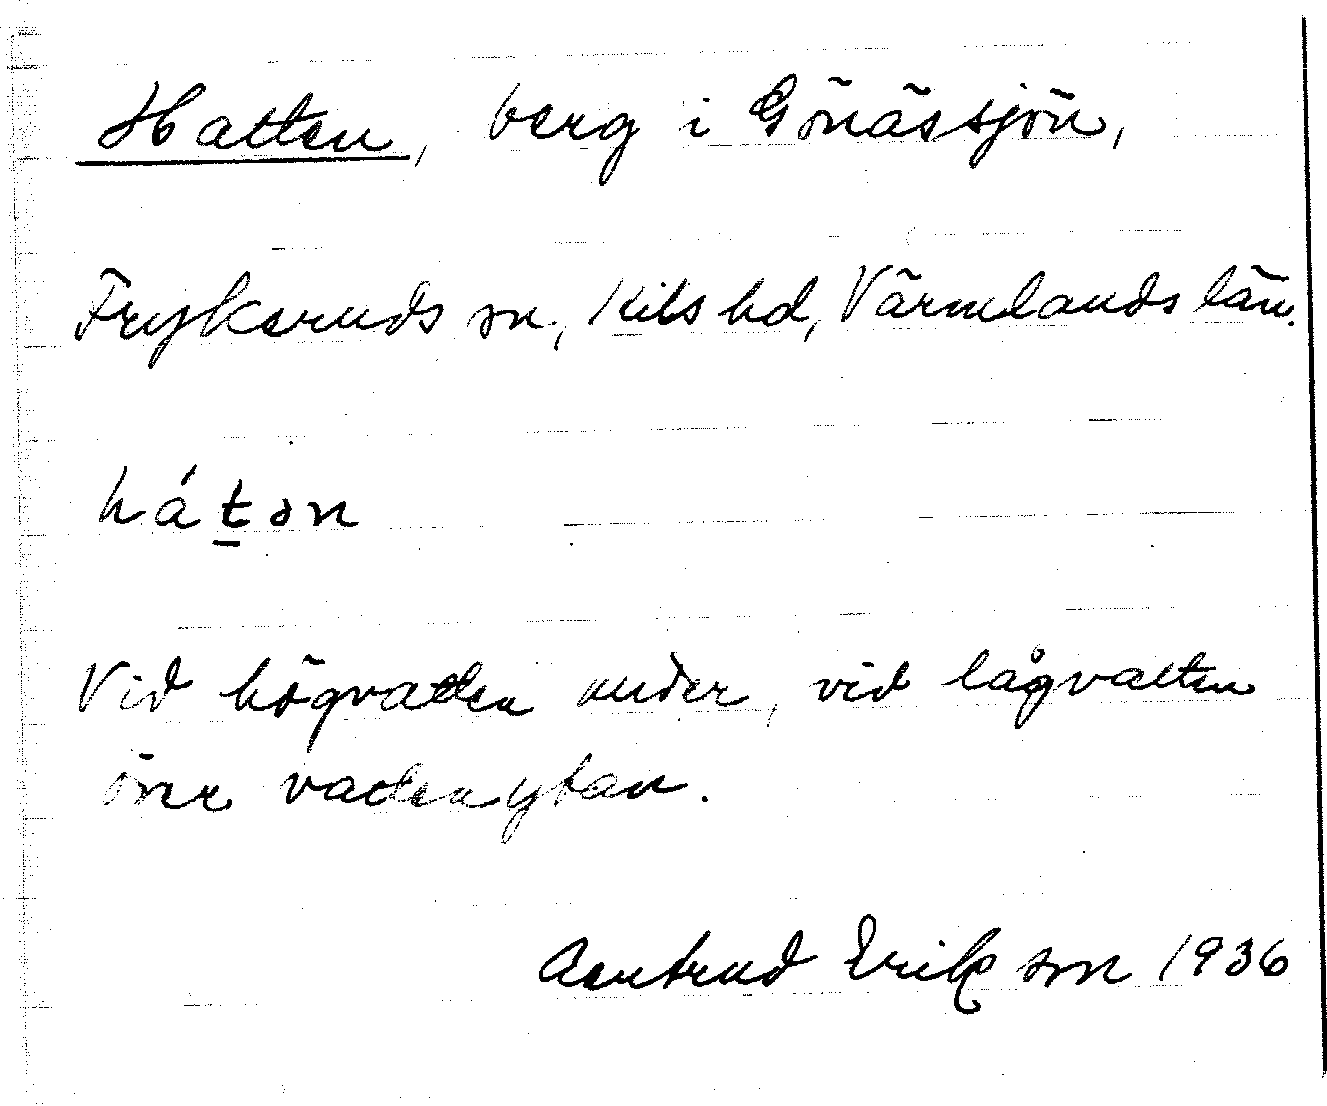 Hatten, berg i Gönässjön,
Frykeruds sn, Kils hd, Värmlands län.
hát̲ən
Vid högvatten under, vid lågvatten
över vattenytan.
Erikson 1936